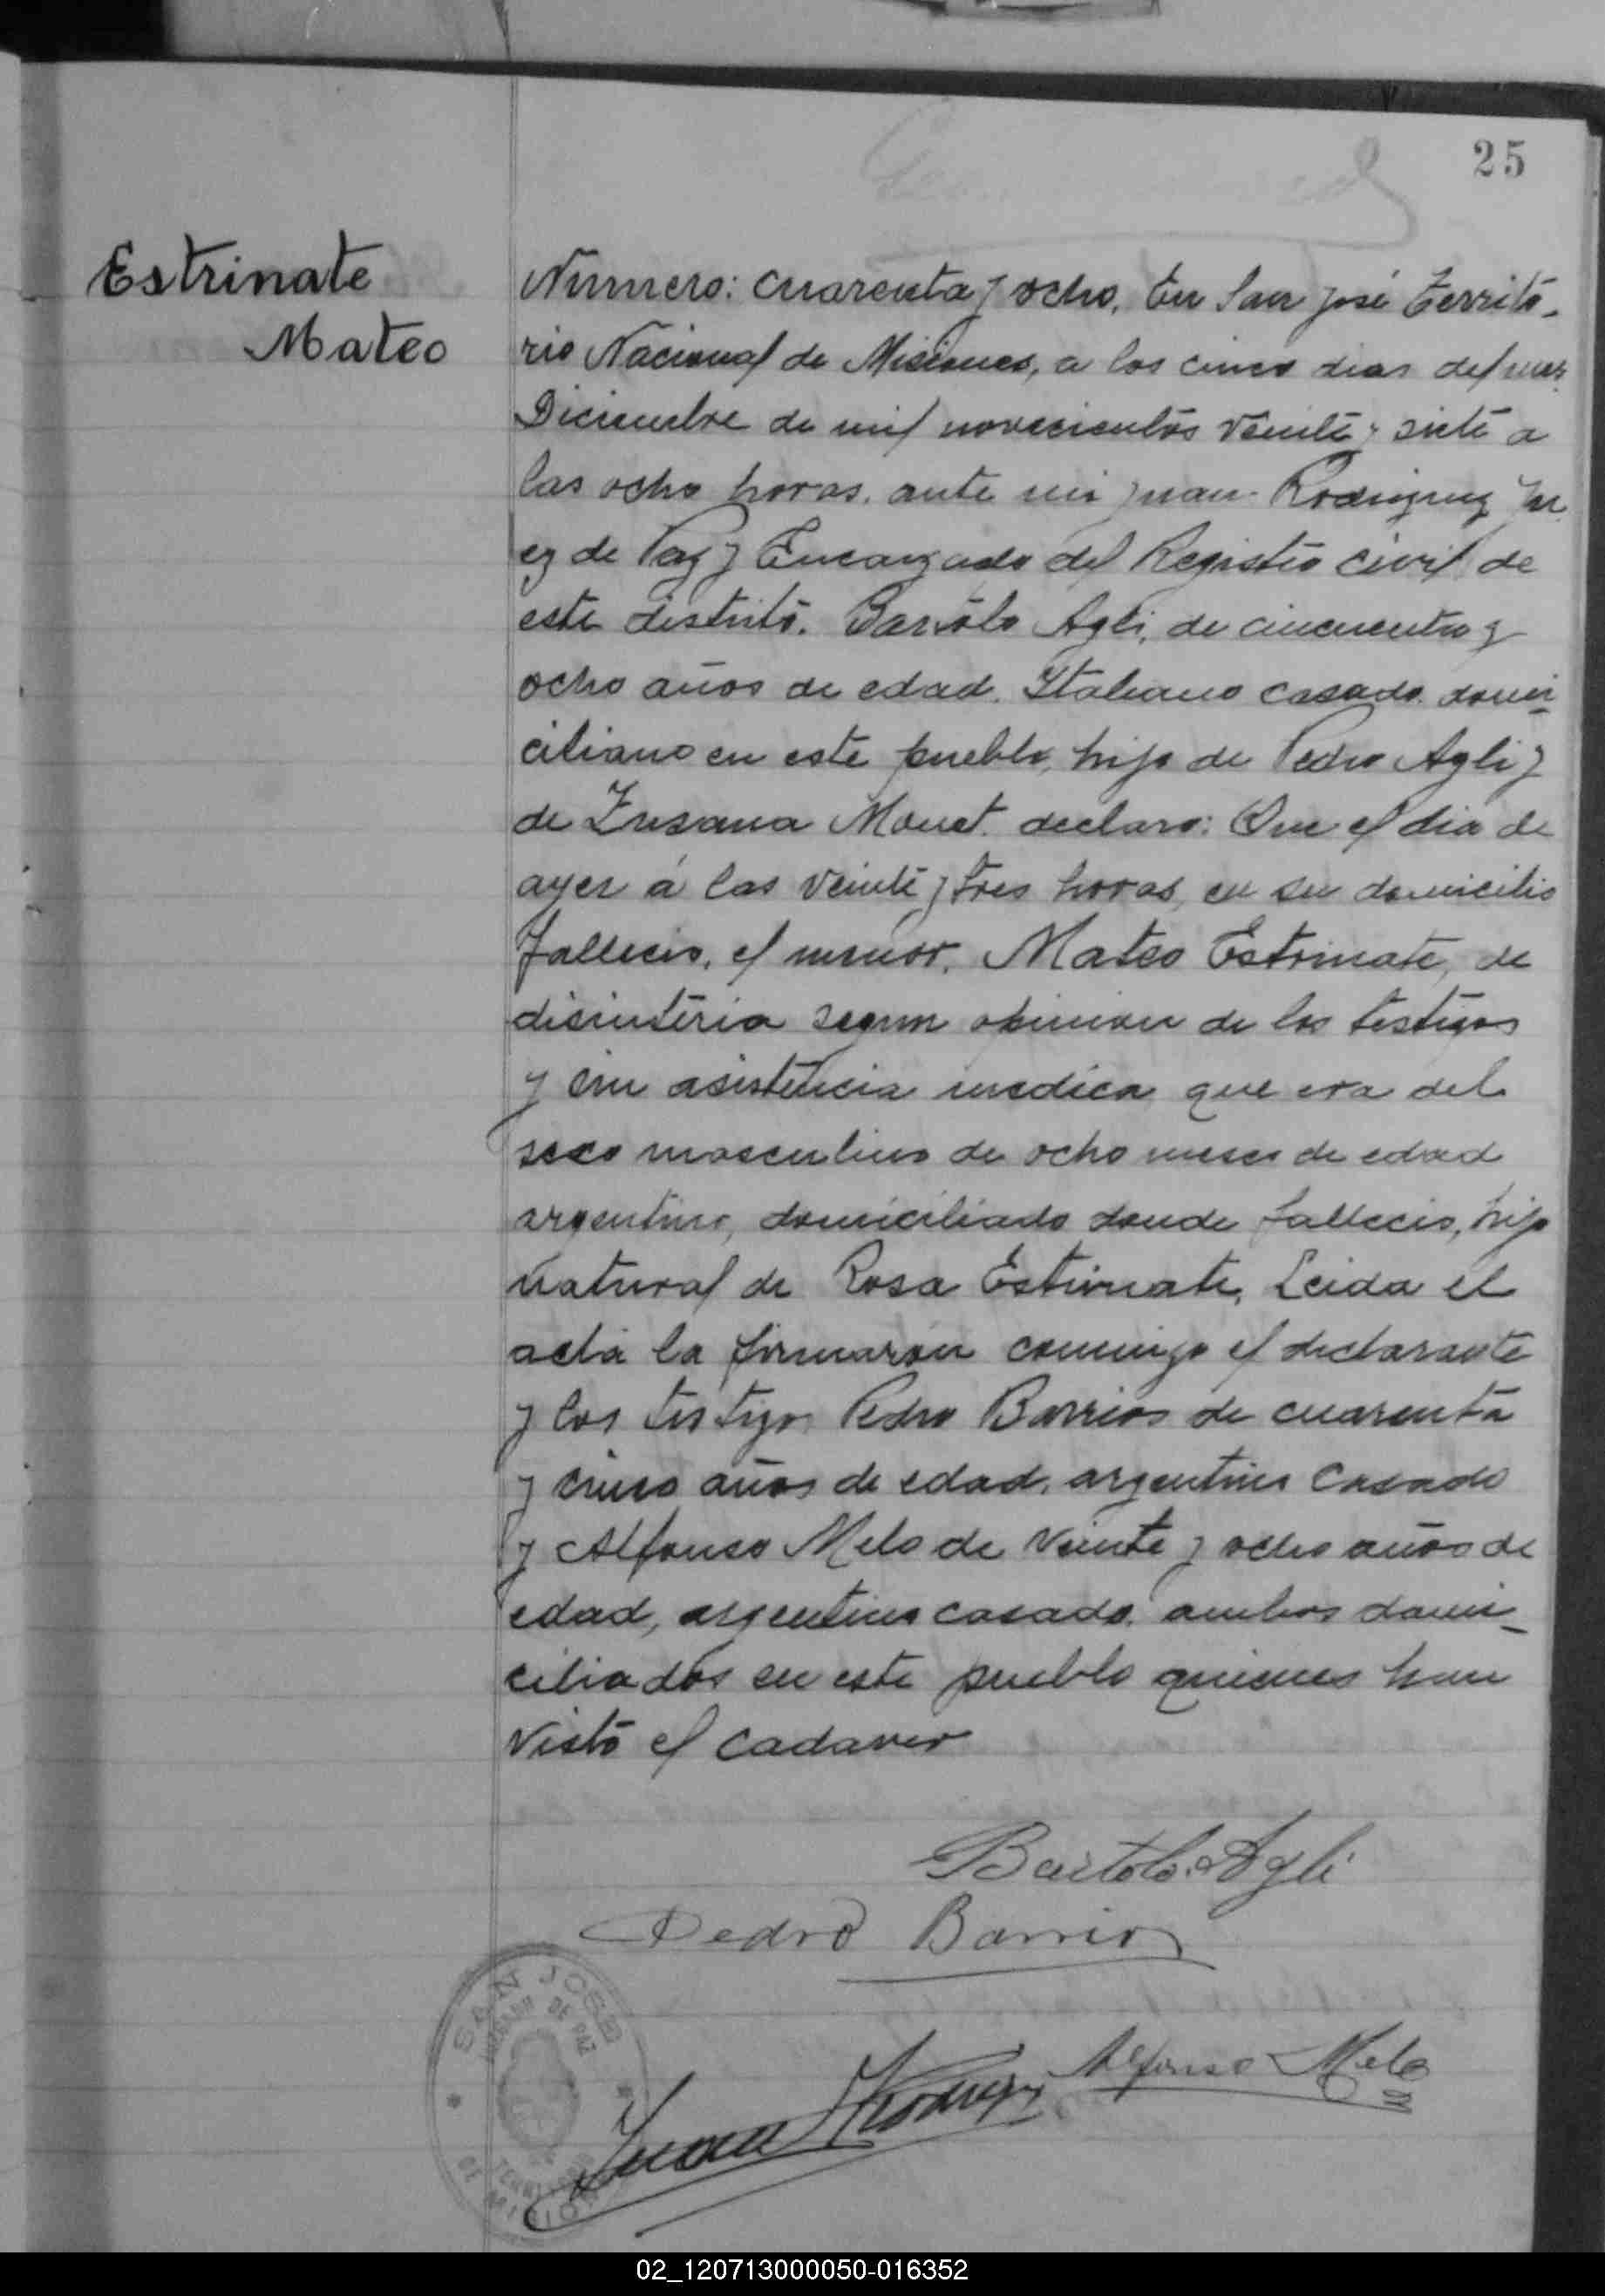 25
Estrinate
Mateo
Número: cuarenta y ocho. En San José Territó-
rio Nacional de Misiones, a los cinco dias del mes
Diciembre de mil novecientos veinte y siete a
las ocho horas. ante mi Juan Rodriguez Ju
ez de Paz y Encargado del Registro civil de
este distrito. Bartolo Agli, de cincuenta y
ocho años de edad. Italiano casado. domi-
ciliano en este pueblo, hijo de Pedro Agli y
de Zusana Monet. declaro: Que el dia de
ayer á las veinte y tres horas, en su domicilio
fallecio, el menor. Mateo Estrinate, de
disinteria segun opinion de los testigos
y sin asistencia medica que era del
sexo masculino de ocho meses de edad
argentino, domiciliado donde fallecio, hijo
natural de Rosa Estrinate. Leida el
acta la firmaron comingo el declarante
y los testigos Pedro Barrios de cuarenta
y cinco años de edad. argentino casado
y Alfonso Melo de veinte y ocho años de
edad, argentino casado. ambos domi-
ciliados en este pueblo quienes han
visto el cadaver
Bartolo Agli
Pedro Barrios
Alfonso Melo
Juan Rodriguez
SAN JOSE
JUZGADO DE PAZ
TERRITORIO
DE MISIONES
02_120713000050-016352